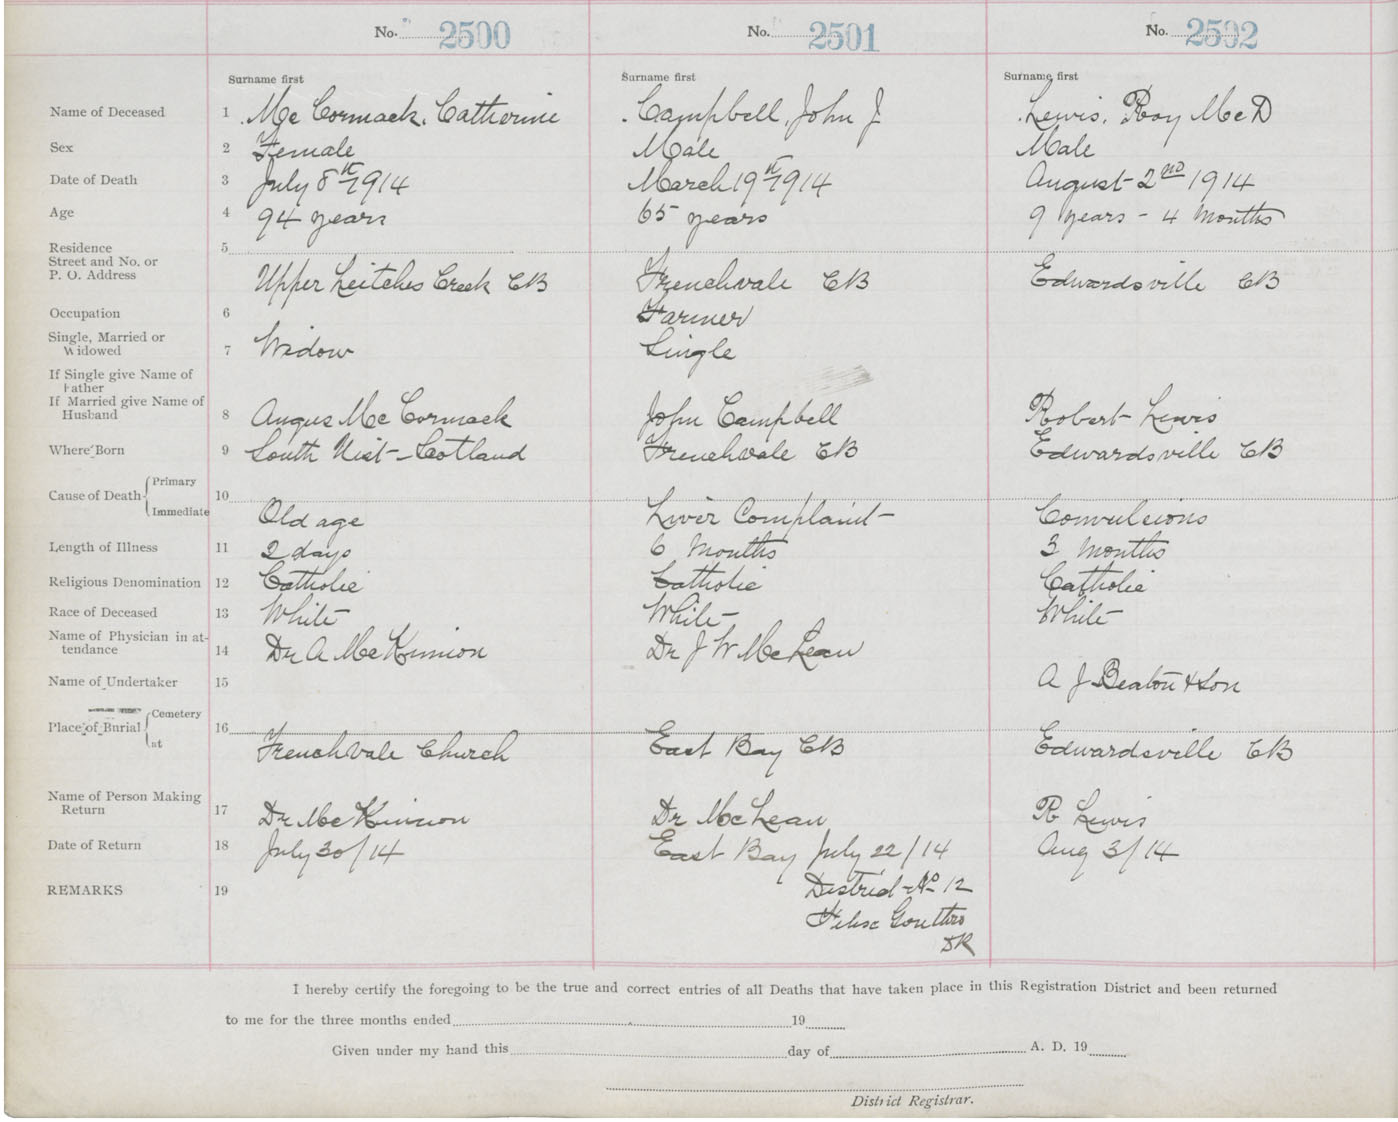 No. 2500 No. 2501 No. 2502
Surname first Surname first Surname first
Name of Deceased 1 Mc Cormack, Catherine Campbell, John J Lewis, Roy McD
Sex 2 Female Male Male
Date of Death 3 July 8th 1914 March 19th 1914 August 2nd 1914
Age 4 94 years 65 years 9 years - 4 Months
Residence 5
Street and No. or
P. O. Address Upper Leitches Creek CB Frenchvale CB Edwardsville CB
Occupation 6 Farmer
Single, Married or
Widowed 7 Widow Single
If Single give Name of
Father
If Married give Name of
Husband 8 Angus Mc Cormack John Campbell Robert Lewis
Where Born 9 South Uist - Scotland Frenchvale CB Edwardsville CB
Cause of Death Primary 10
Immediate Old age Liver Complaint Convulsions
Length of Illness 11 2 days 6 Months 3 months
Religious Denomination 12 Catholic Catholic Catholic
Race of Deceased 13 White White White
Name of Physician in at-
tendance 14 Dr A McKinnon Dr J W McLean
Name of Undertaker 15 A J Beaton & Son
Place of Burial Cemetery 16
at Frenchvale Church East Bay CB Edwardsville CB
Name of Person Making
Return 17 Dr McKinnon Dr McLean R Lewis
Date of Return 18 July 30/14 East Bay July 22/14 Aug 3/14
REMARKS 19 District No 12
Felix Gouthro
DR
I hereby certify the foregoing to be the true and correct entries of all Deaths that have taken place in this Registration District and been returned
to me for the three months ended 19
Given under my hand this day of A. D. 19
District Registrar.